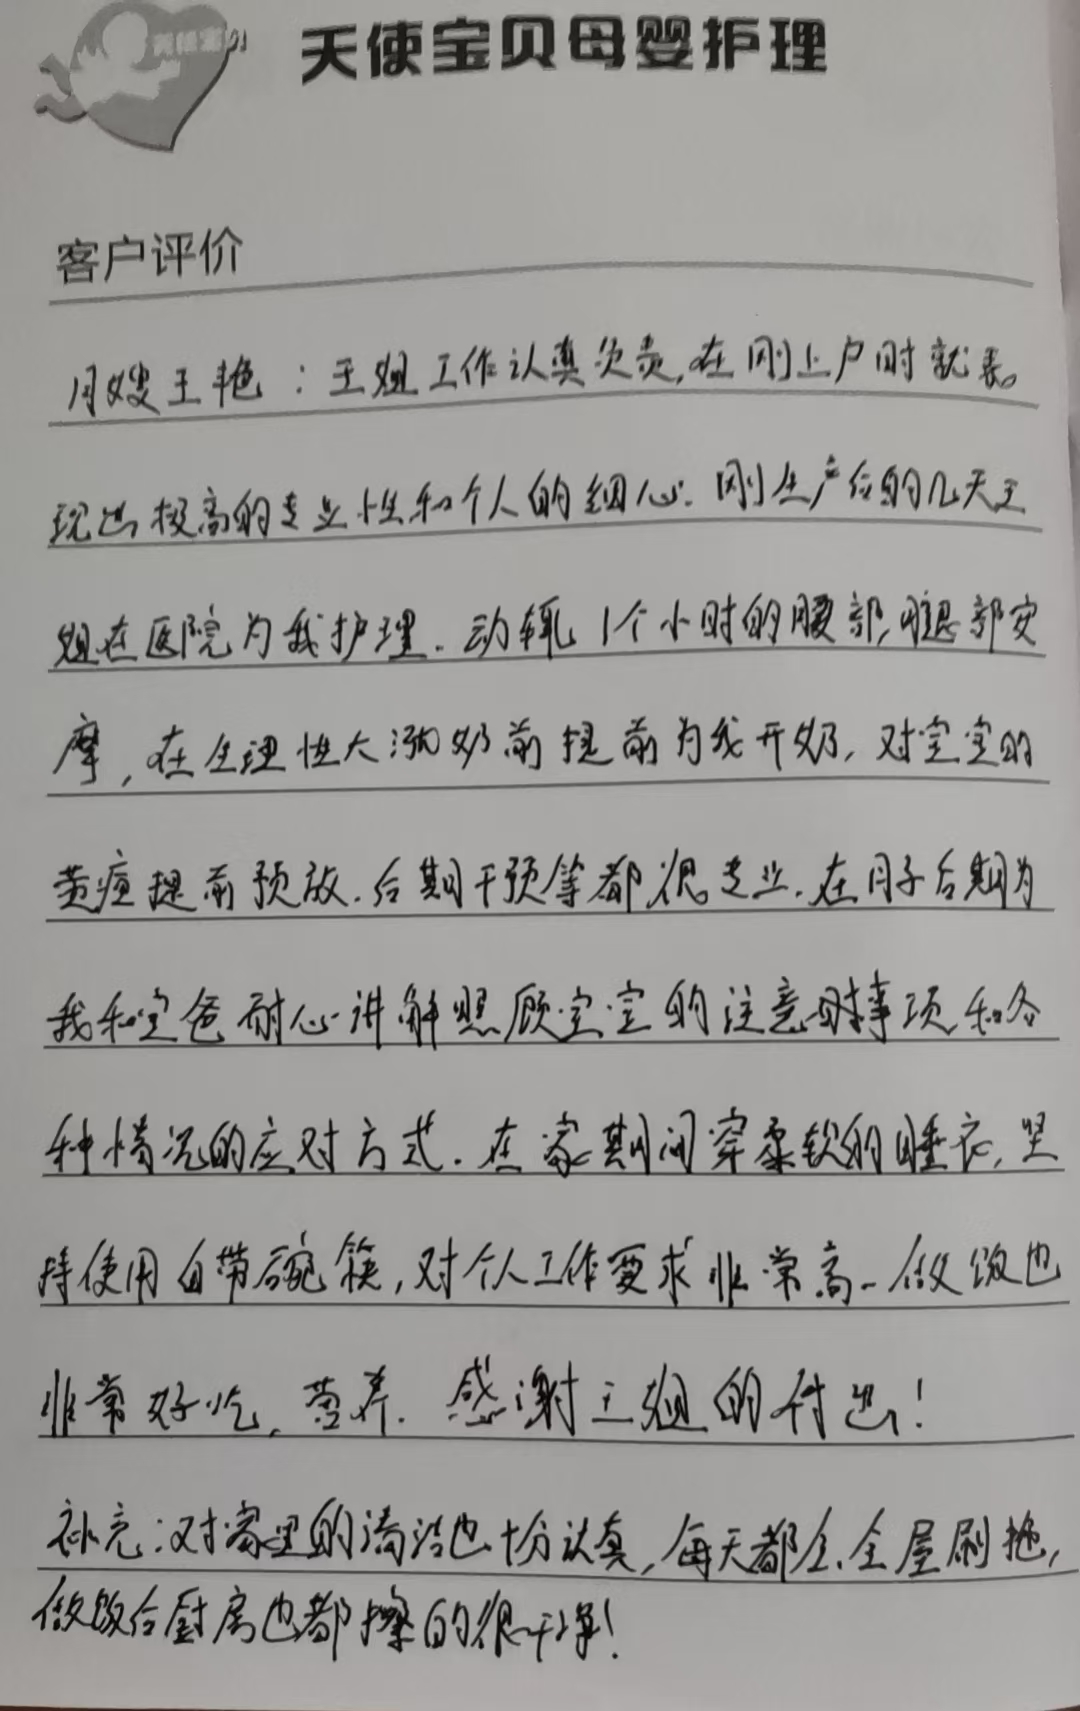 天使宝贝母婴护理
客户评价
月嫂王艳：王姐工作认真负责,在刚上户时就表
现出极高的专业性和个人的细心.刚生产后的几天王
姐在医院为我护理.动辄1个小时的腰部,腿部安
摩,在生理性大涨奶前提前为我开奶,对宝宝的
黄疸提前预放.后期干预等都很专业.在月子后期为
我和宝爸耐心讲解照顾宝宝的注意事项和各
种情况的应对方式.在家期间穿柔软的睡衣,坚
持使用自带碗筷,对个人工作要求非常高.做饭也
非常好吃、营养.感谢王姐的付出!
补充:对家里的清洁也十分认真,每天都全屋刷拖,
做饭后厨房也都擦的很干净!